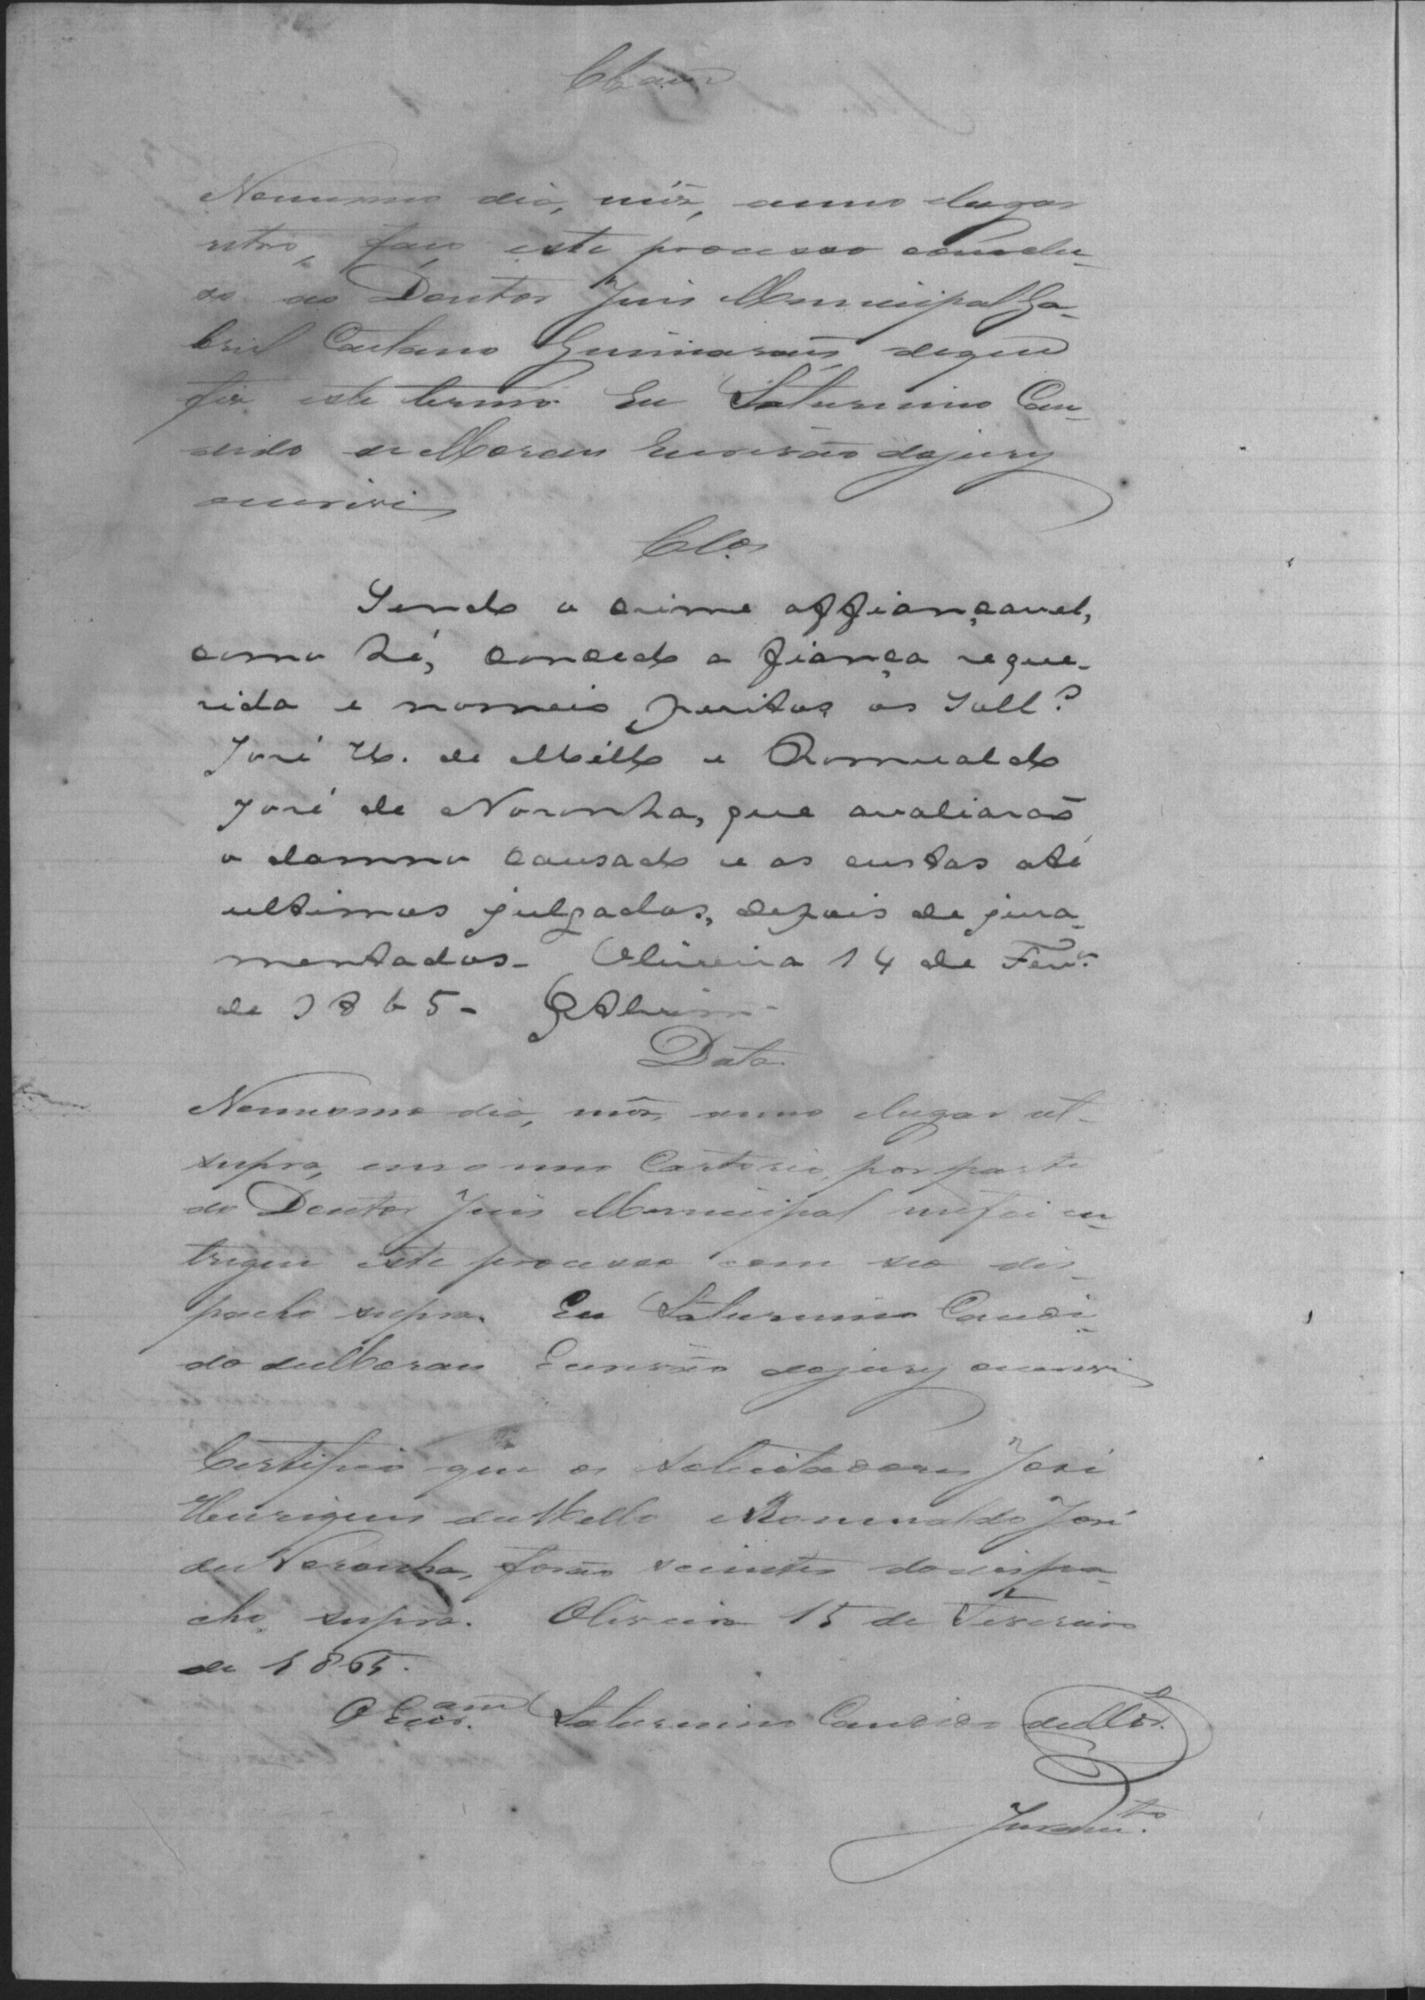 Clsam
Nomesmo dia, mês, anno elugar
retro, faço este processo conclu-
so ao Doutor Juis Municipal Ga-
briel Caetano Guimaraes, deque
fiz este termo. Eu Saturnino Can-
dido de Moraes Escrivão dojury
escrivi
Cls.
Sendo o crime affiançavel,
como hé, concedo a fiança reque-
rida e nomeio peritos os Soll.s
José H. de Mello e Romualdo
José de Noronha, que avaliarão
o damno causado e as custas até
ultimos julgados, depois de jura-
mentados. Oliveira 14 de Fevr.º
de 1865-
Data
Nomesmo dia, mês, anno elugar ut-
supra, em o meo Cartorio, por parte
do Doutor Juis Municipal mefoi en-
tregue este processo com seo des-
pacho supra. Eu Saturnino Candi-
do deMoraes Escrivão dojury escrevi
Certifico que os solicitadores José
Henriques deMello eRomualdo José
deNoronha, forão scientes dodespa-
cho supra. Oliveira 15 de Fevereiro
de 1865.
O Escr.am Saturnino Candido deMor.s
Juram.to